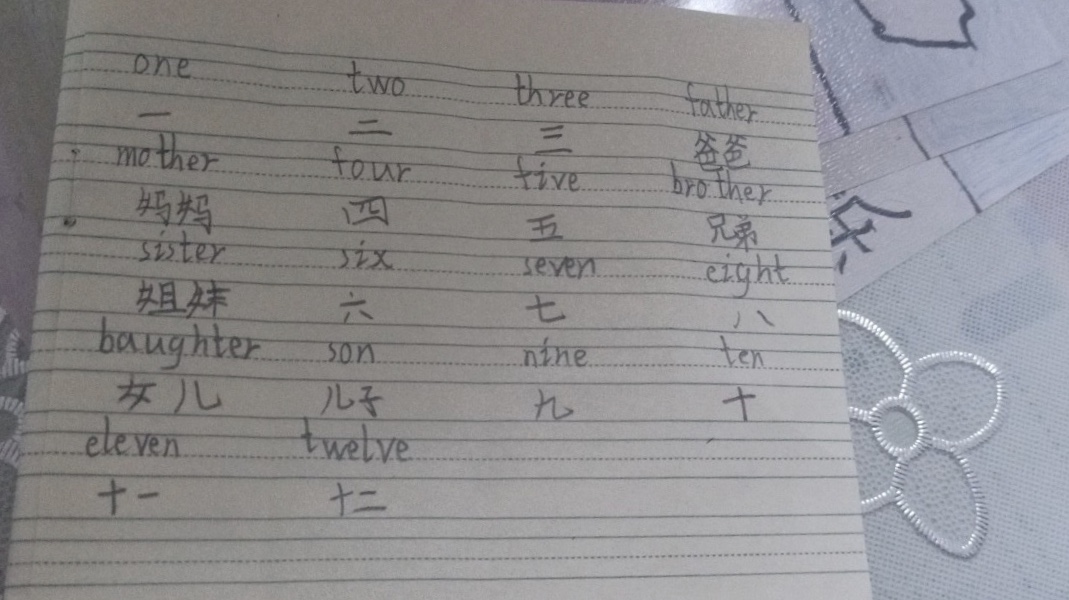 one two three father
一 二 三 爸爸
mother four five brother
妈妈 四 五 兄弟
sister six seven eight
姐妹 六 七 八
baughter son nine ten
女儿 儿子 九 十
eleven twelve
十一 十二